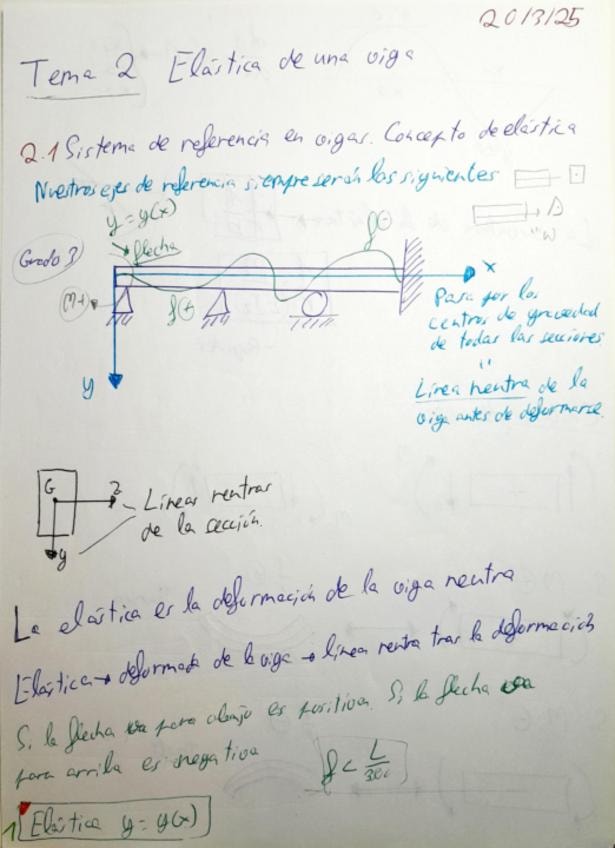 20/3/25
Tema 2 Elástica de una viga
2.1 Sistema de referencia en vigas. Concepto de elástica
Nuestros ejes de referencia siempre serán los siguientes
y = y(x)
flecha
f⊖
Grado 3
x
f⊕
y
Pasa por los
centros de gravedad
de todas las secciones
Línea neutra de la
viga antes de deformarse.
G
z
y
Líneas neutras
de la sección.
La elástica es la deformación de la viga neutra
Elástica → deformada de la viga → línea neutra tras la deformación
Si la flecha va para abajo es positiva. Si la flecha va
para arriba es negativa
f < L/300
1 Elástica y = y(x)